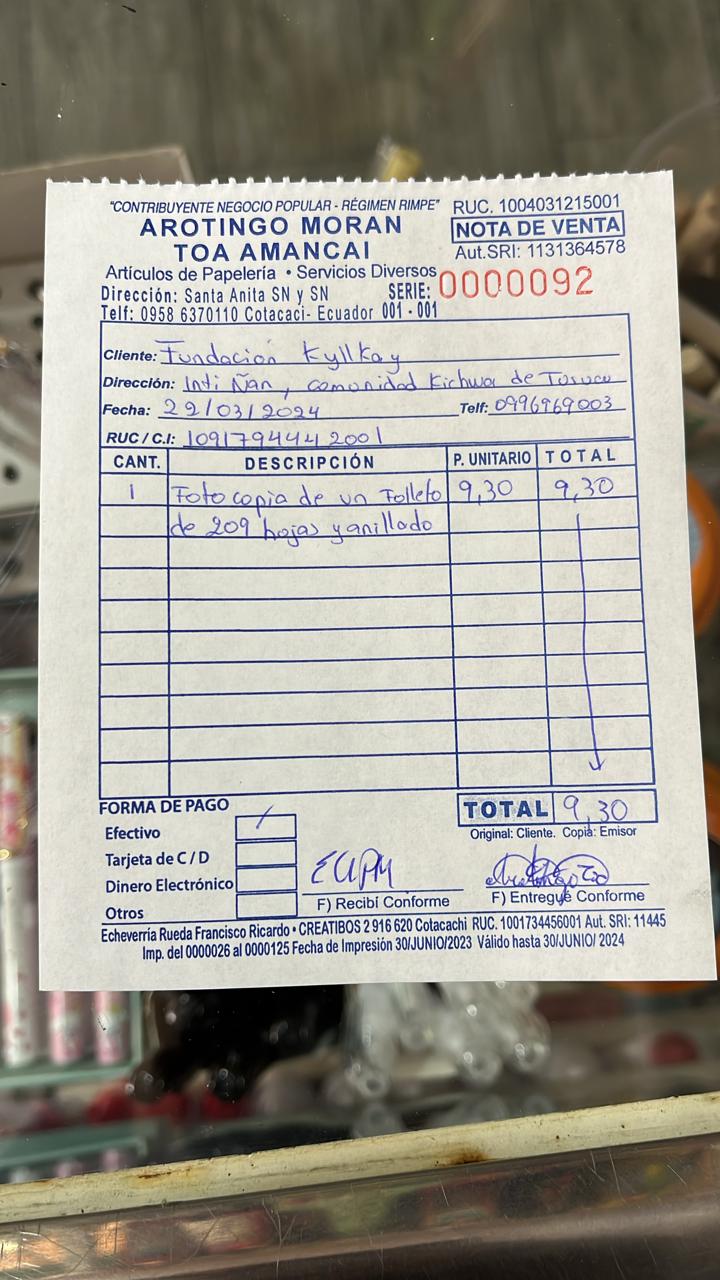 "CONTRIBUYENTE NEGOCIO POPULAR - RÉGIMEN RIMPE"
AROTINGO MORAN
TOA AMANCAI
Artículos de Papelería • Servicios Diversos
Dirección: Santa Anita SN y SN
Telf: 0958 6370110 Cotacaci- Ecuador
RUC. 1004031215001
NOTA DE VENTA
Aut.SRI: 1131364578
SERIE: 0000092
001 - 001
Cliente: Fundación Kyllkay
Dirección: Inti Ñan, comunidad Kichwa de
Fecha: 22/03/2024 Telf: 0996969003
RUC / C.I: 1091794442001
CANT. DESCRIPCIÓN P. UNITARIO TOTAL
1 Fotocopia de un Folleto 9,30 9,30
de 209 hojas y anillado
FORMA DE PAGO
Efectivo
Tarjeta de C / D
Dinero Electrónico
Otros
TOTAL 9,30
Original: Cliente. Copia: Emisor
F) Recibí Conforme
F) Entregue Conforme
Echeverría Rueda Francisco Ricardo • CREATIBOS 2 916 620 Cotacachi RUC. 1001734456001 Aut. SRI: 11445
Imp. del 0000026 al 0000125 Fecha de Impresión 30/JUNIO/2023 Válido hasta 30/JUNIO/ 2024